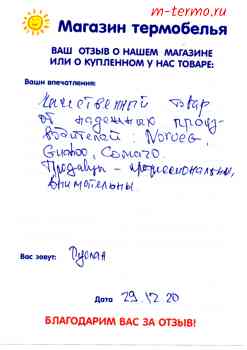 m-termo.ru
Магазин термобелья
ВАШ ОТЗЫВ О НАШЕМ МАГАЗИНЕ
ИЛИ О КУПЛЕННОМ У НАС ТОВАРЕ:
Ваши впечатления:
Качественный товар
от надежных произ-
водителей: Norveg,
Guahoo, Comazo.
Продавцы - профессиональны,
внимательны
Вас зовут: Руслан
Дата 29.12.20
БЛАГОДАРИМ ВАС ЗА ОТЗЫВ!